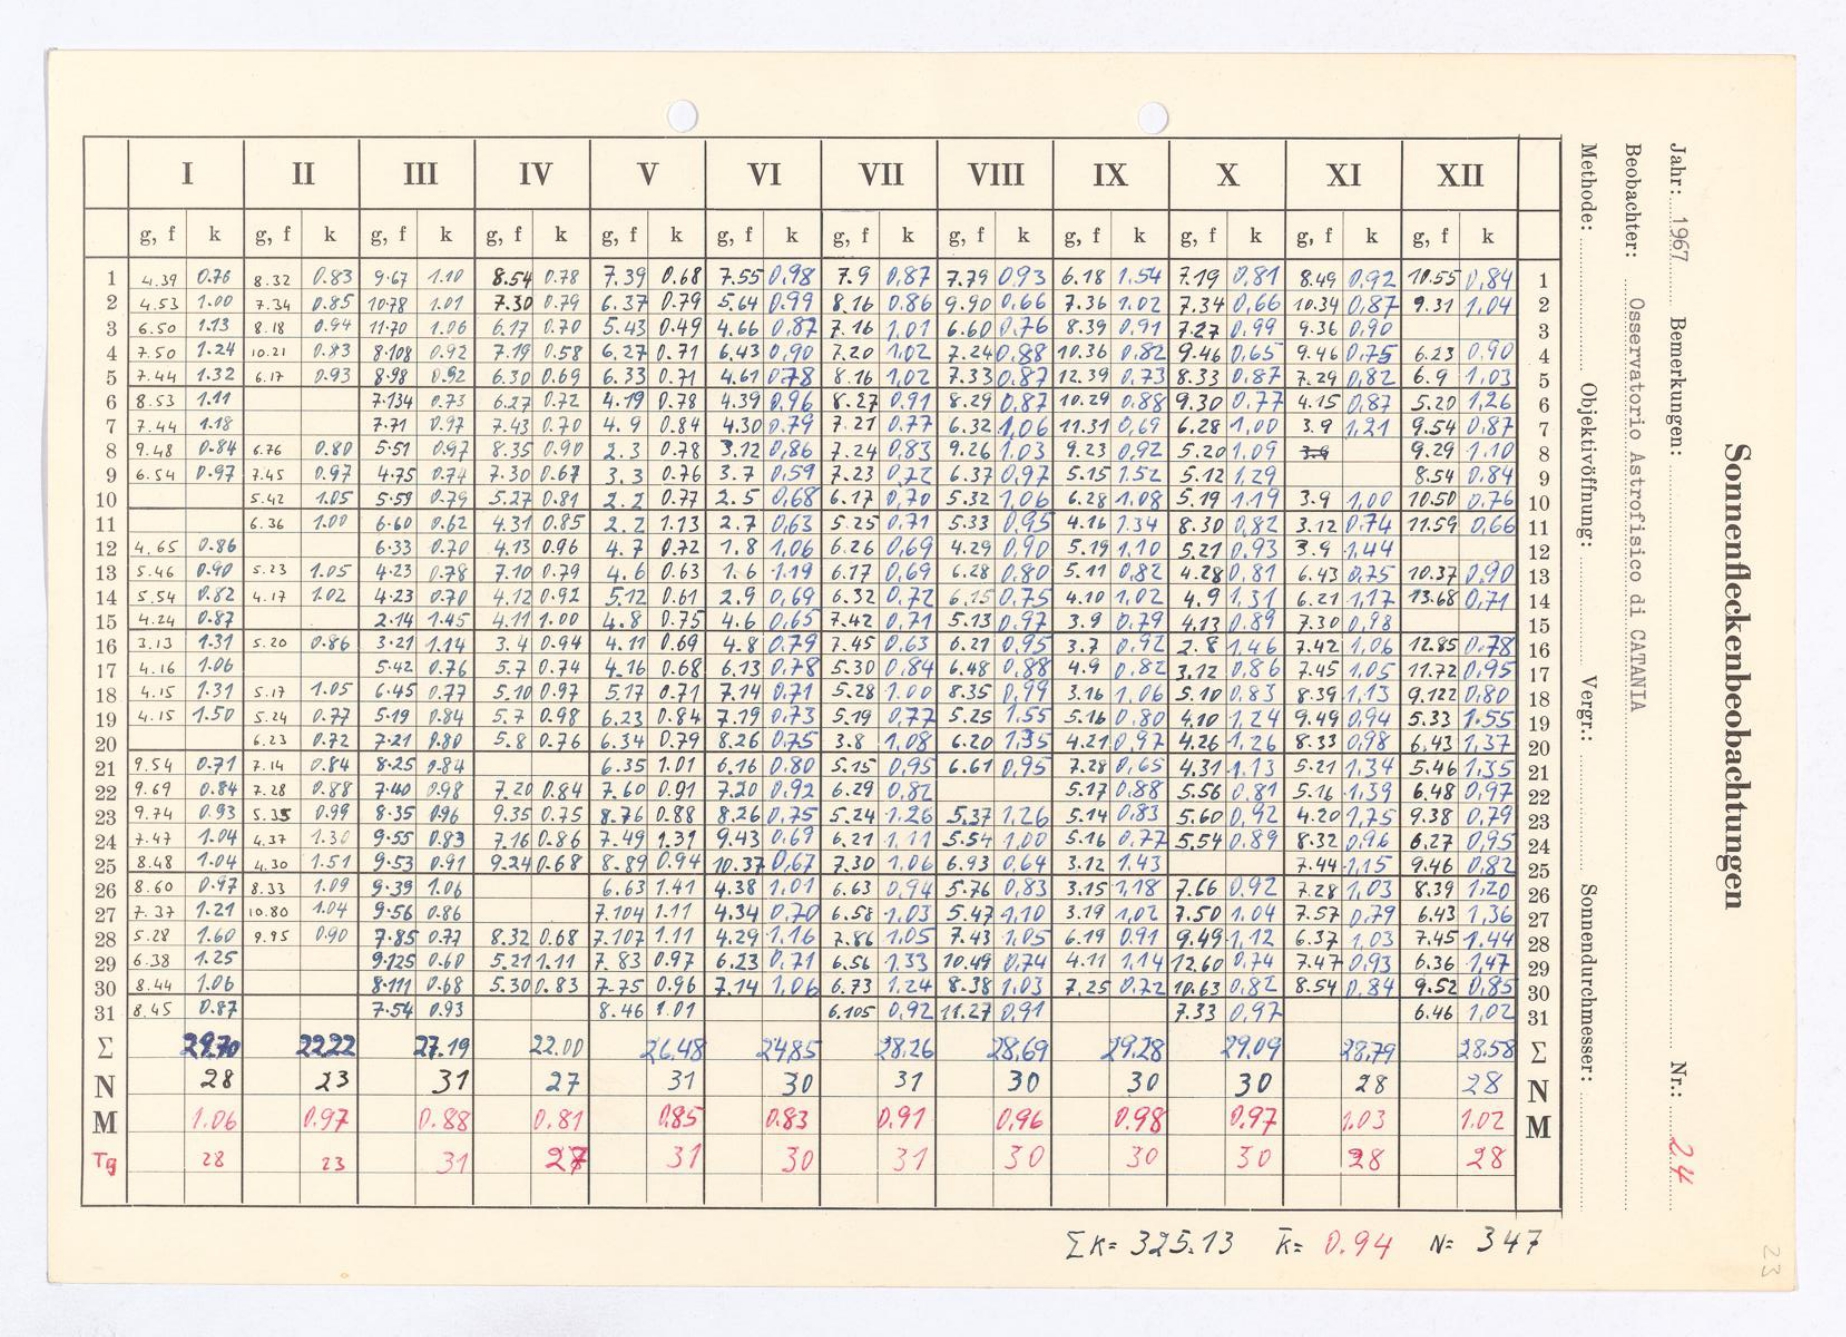 I II III IV V VI VII VIII IX X XI XII
g, f k g, f k g, f k g, f k g, f k g, f k g, f k g, f k g, f k g, f k g, f k g, f k
1 4.39 0.76 8.32 0.83 9.67 1.10 8.54 0.78 7.39 0.68 7.55 0,98 7.9 0,87 7.79 0,93 6.18 1,54 7.19 0,81 8.49 0,92 10.55 0,84 1
2 4.53 1.00 7.34 0.85 10.78 1.01 7.30 0.79 6.37 0.79 5.64 0.99 8.16 0,86 9.90 0,66 7.36 1.02 7.34 0,66 10.34 0,87 9.31 1,04 2
3 6.50 1.13 8.18 0.94 11.70 1.06 6.17 0.70 5.43 0.49 4.66 0,87 7.16 1,01 6.60 0,76 8.39 0,91 7.27 0,99 9.36 0,90 3
4 7.50 1.24 10.21 0.83 8.108 0.92 7.19 0.58 6.27 0.71 6.43 0,90 7.20 1,02 7.24 0,88 10.36 0,82 9.46 0,65 9.46 0,75 6.23 0,90 4
5 7.44 1.32 6.17 0.93 8.98 0.92 6.30 0.69 6.33 0.71 4.61 0,78 8.16 1,02 7.33 0,87 12.39 0,73 8.33 0,87 7.29 0,82 6.9 1,03 5
6 8.53 1.11 7.134 0.73 6.27 0.72 4.19 0.78 4.39 0,96 8.27 0,91 8.29 0,87 10.29 0,88 9.30 0,77 4.15 0,87 5.20 1,26 6
7 7.44 1.18 7.71 0.97 7.43 0.70 4.9 0.84 4.30 0,79 7.21 0,77 6.32 1,06 11.31 0,69 6.28 1,00 3.9 1,21 9.54 0,87 7
8 9.48 0.84 6.76 0.80 5.51 0.97 8.35 0.90 2.3 0.78 3.12 0,86 7.24 0,83 9.26 1,03 9.23 0,92 5.20 1,09 3.9 9.29 1,10 8
9 6.54 0.97 7.45 0.97 4.75 0.74 7.30 0.67 3.3 0.76 3.7 0,59 7.23 0,72 6.37 0,97 5.15 1.52 5.12 1,29 8.54 0,84 9
10 5.42 1.05 5.59 0.79 5.27 0.81 2.2 0.77 2.5 0,68 6.17 0,70 5.32 1,06 6.28 1,08 5.19 1,19 3.9 1,00 10.50 0,76 10
11 6.36 1.00 6.60 0.62 4.31 0.85 2.2 1.13 2.7 0,63 5.25 0,71 5.33 0,95 4.16 1.34 8.30 0,82 3.12 0,74 11.59 0,66 11
12 4.65 0.86 6.33 0.70 4.13 0.96 4.7 0.72 1.8 1,06 6.26 0,69 4.29 0,90 5.19 1,10 5.21 0,93 3.9 1,44 12
13 5.46 0.90 5.23 1.05 4.23 0.78 7.10 0.79 4.6 0.63 1.6 1.19 6.17 0,69 6.28 0,80 5.11 0,82 4.28 0,81 6.43 0,75 10.37 0,90 13
14 5.54 0.82 4.17 1.02 4.23 0.70 4.12 0.92 5.12 0.61 2.9 0,69 6.32 0,72 6.15 0,75 4.10 1,02 4.9 1,31 6.21 1,17 13.68 0,71 14
15 4.24 0.87 2.14 1.45 4.11 1.00 4.8 0.75 4.6 0,65 7.42 0,71 5.13 0,97 3.9 0.79 4.13 0,89 7.30 0,98 15
16 3.13 1.31 5.20 0.86 3.21 1.14 3.4 0.94 4.11 0.69 4.8 0,79 7.45 0,63 6.21 0,95 3.7 0,92 2.8 1,46 7.42 1,06 12.85 0,78 16
17 4.16 1.06 5.42 0.76 5.7 0.74 4.16 0.68 6.13 0,78 5.30 0,84 6.48 0,88 4.9 0,82 3.12 0,86 7.45 1,05 11.72 0,95 17
18 4.15 1.31 5.17 1.05 6.45 0.77 5.10 0.97 5.17 0.71 7.14 0,71 5.28 1.00 8.35 0,99 3.16 1,06 5.10 0,83 8.39 1,13 9.122 0,80 18
19 4.15 1.50 5.24 0.77 5.19 0.84 5.7 0.98 6.23 0.84 7.19 0,73 5.19 0,77 5.25 1,55 5.16 0,80 4.10 1,24 9.49 0,94 5.33 1.55 19
20 6.23 0.72 7.21 0.80 5.8 0.76 6.34 0.79 8.26 0,75 3.8 1,08 6.20 1,35 4.21 0,97 4.26 1,26 8.33 0,98 6.43 1,37 20
21 9.54 0.71 7.14 0.84 8.25 0.84 6.35 1.01 6.16 0,80 5.15 0,95 6.61 0,95 7.28 0,65 4.31 1.13 5.21 1,34 5.46 1,35 21
22 9.69 0.84 7.28 0.88 7.40 0.98 7.20 0.84 7.60 0.91 7.20 0,92 6.29 0,82 5.17 0,88 5.56 0,81 5.16 1,39 6.48 0,97 22
23 9.74 0.93 5.35 0.99 8.35 0.96 9.35 0.75 8.76 0.88 8.26 0,75 5.24 1,26 5.37 1,26 5.14 0,83 5.60 0,92 4.20 1,75 9.38 0,79 23
24 7.47 1.04 4.37 1.30 9.55 0.83 7.16 0.86 7.49 1.31 9.43 0,69 6.21 1,11 5.54 1,00 5.16 0,77 5.54 0,89 8.32 0,96 6.27 0,95 24
25 8.48 1.04 4.30 1.51 9.53 0.91 9.24 0.68 8.89 0.94 10.37 0,67 7.30 1,06 6.93 0,64 3.12 1.43 7.44 1,15 9.46 0,82 25
26 8.60 0.97 8.33 1.09 9.39 1.06 6.63 1.41 4.38 1,01 6.63 0,94 5.76 0,83 3.15 1,18 7.66 0,92 7.28 1,03 8.39 1.20 26
27 7.37 1.21 10.80 1.04 9.56 0.86 7.104 1.11 4.34 0,70 6.58 1,03 5.47 1,10 3.19 1,02 7.50 1,04 7.57 0,79 6.43 1,36 27
28 5.28 1.60 9.95 0.90 7.85 0.77 8.32 0.68 7.107 1.11 4.29 1.16 7.86 1,05 7.43 1,05 6.19 0.91 9.49 1,12 6.37 1,03 7.45 1.44 28
29 6.38 1.25 9.125 0.60 5.21 1.11 7.83 0.97 6.23 0,71 6.56 1,33 10.49 0,74 4.11 1,14 12.60 0,74 7.47 0,93 6.36 1,47 29
30 8.44 1.06 8.111 0.68 5.30 0.83 7.75 0.96 7.14 1,06 6.73 1,24 8.38 1,03 7.25 0,72 10.63 0,82 8.54 0,84 9.52 0,85 30
31 8.45 0.87 7.54 0.93 8.46 1.01 6.105 0,92 11.27 0,91 7.33 0,97 6.46 1,02 31
Σ 29.70 22.22 27.19 22.00 26.48 24,85 28.26 28,69 29,28 29,09 28,79 28.58 Σ
N 28 23 31 27 31 30 31 30 30 30 28 28 N
M 1.06 0.97 0.88 0.81 0.85 0.83 0.91 0,96 0.98 0.97 1.03 1.02 M
Tg 28 23 31 27 31 30 31 30 30 30 28 28
ΣK= 325.13 k̄= 0.94 N= 347
Sonnenfleckenbeobachtungen
Jahr: 1967 Bemerkungen: Nr.: 24
Beobachter: Osservatorio Astrofisico di CATANIA
Methode: Objektivöffnung: Vergr.: Sonnendurchmesser:
23